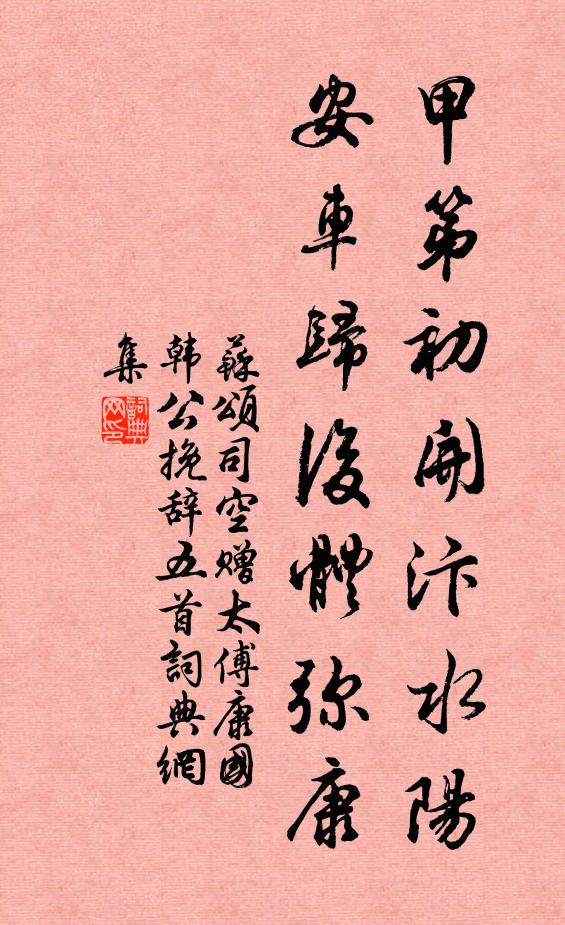 甲第初開汴水陽
安車歸後體弥康
蘇頌司空赠太傅康國
韩公挽辞五首詞典網
集
詞典网印